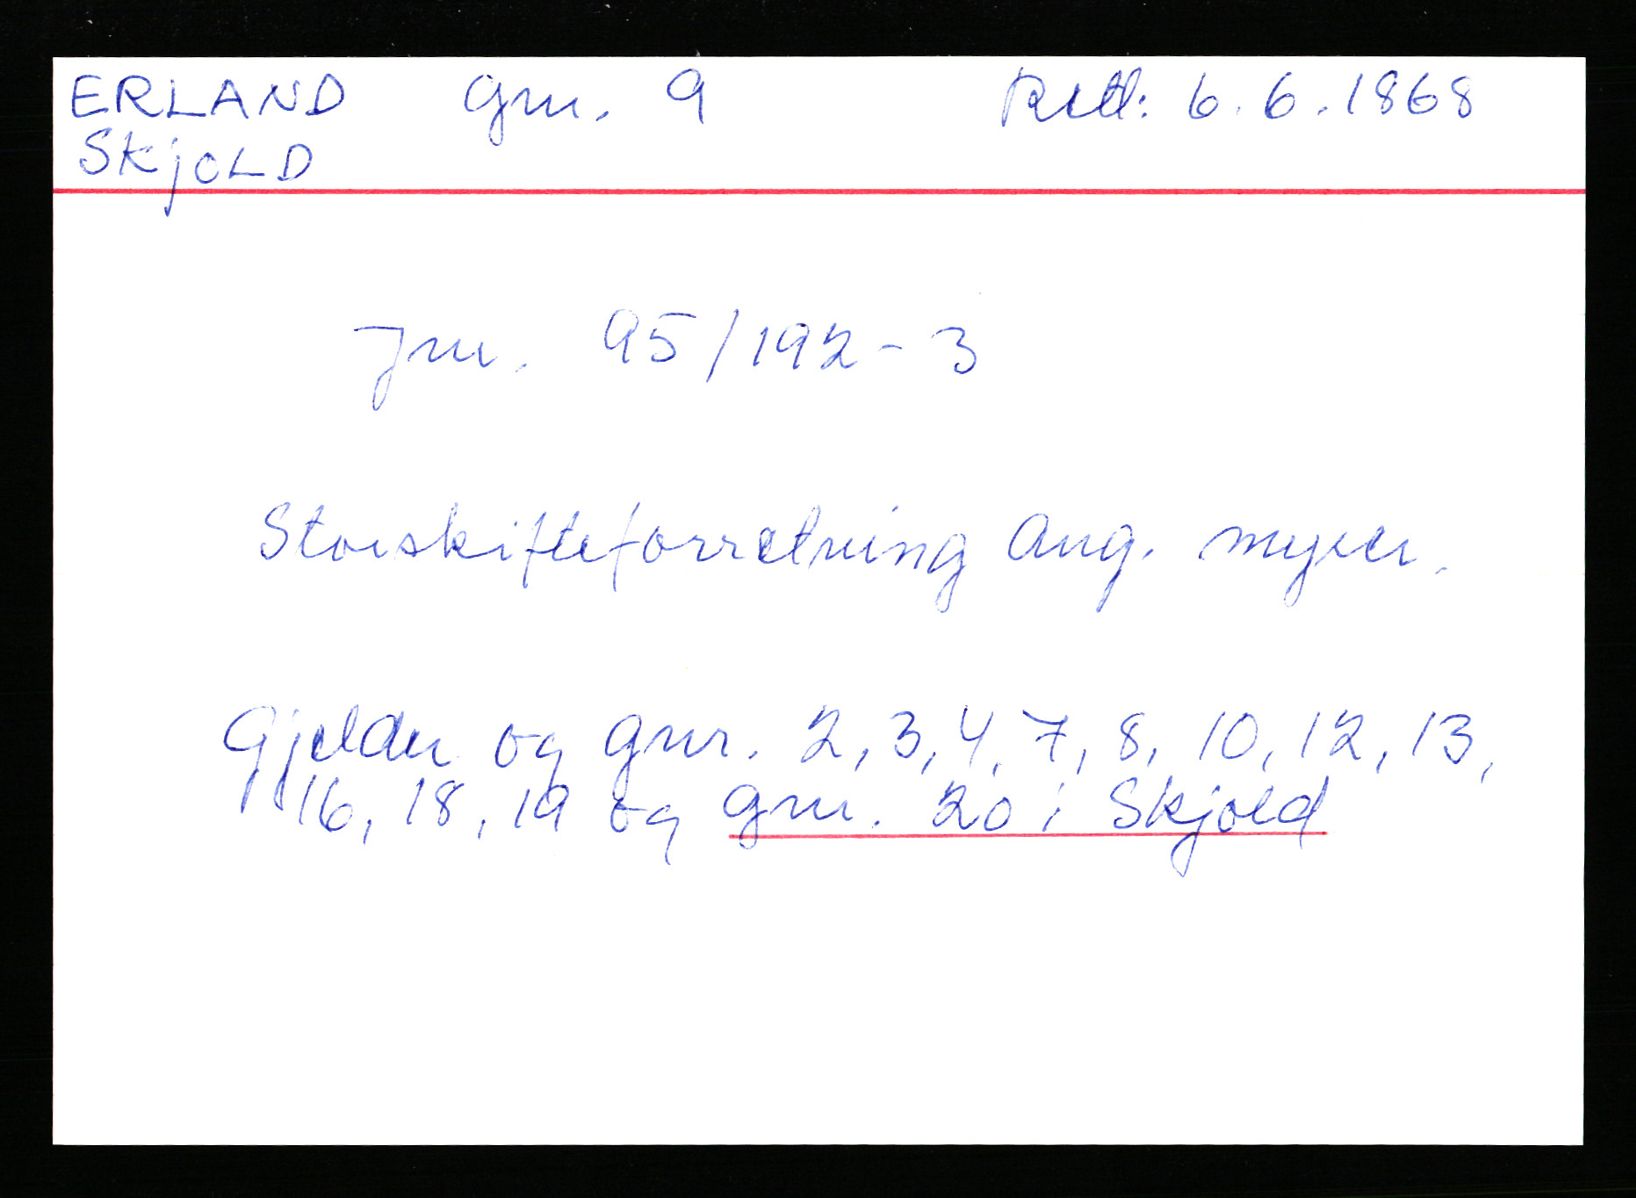 ERLAND gnr. 9 Rettl: 6.6.1868
SKjOLD
Jnr. 95/192-3
Storskifteforretning ang. myrer.
Gjelder og gnr. 2, 3, 4, 7, 8, 10, 12, 13,
16, 18, 19 og gnr. 20 i Skjold